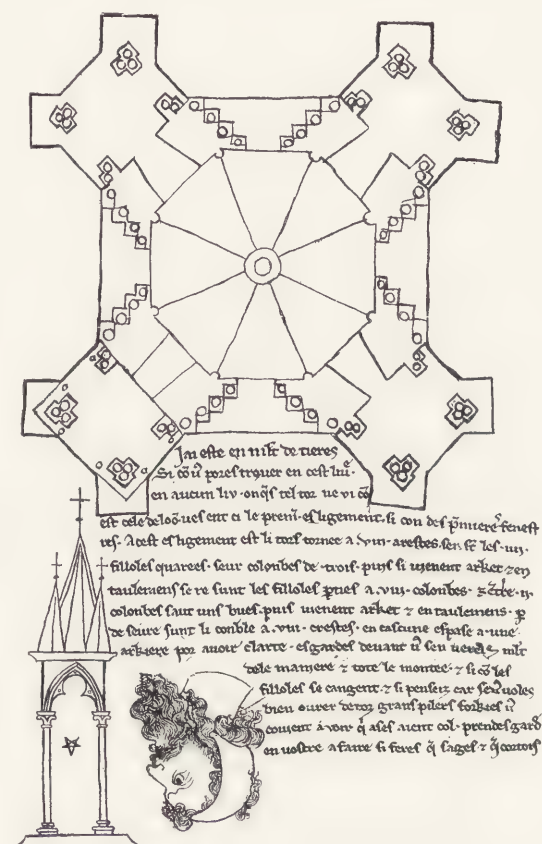 Jai este en ml't de tieres
Si cō v̄ pores trover en cest liv̄.
en aucun liv. onq̄s tel tor ne vi cō
est cele deloō. ves ent ci le prem̄. esligement. si con des p̄miere fenest
res. A cest esligement est li tors tornee a .viii. arestes. sen st̄ les .iiii.
filloles quarees. seur colonbes de trois. puis si uienent arket ⁊ en
taulemens se re sunt les filloles p̄ties a .viii. colonbes. ⁊ ētre .ii.
colonbes saut uns bues. puis uienent arket ⁊ en taulemens. p̄
de seure sunt li conble a .viii. crestes. en cascune espase a une
arkiere por auoir clarte. esgardes deuant v̄ sen ueres ml't
dele maniere ⁊ tote le montee. ⁊ si cō les
filloles se cangent. ⁊ si penseiz car se uos voles
bien ourer de toz grans pilers forkies v̄
couient avoir q̄ ases aient col. prendes gard
en uostre afaire si feres q̄ sages ⁊ q̄ cortois